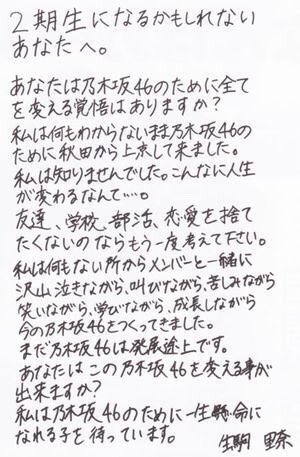 2期生になるかもしれない
あなたへ。
あなたは乃木坂46のために全て
を変える覚悟はありますか?
私は何もわからないまま乃木坂46の
ために秋田から上京して来ました。
私は知りませんでした。こんなに人生
が変わるなんて…。
友達、学校、部活、恋愛を捨て
たくないのならもう一度考えて下さい。
私は何もない所からメンバーと一緒に
沢山泣きながら、叫びながら、苦しみながら
笑いながら、学びながら、成長しながら
今の乃木坂46をつくってきました。
まだ乃木坂46は発展途上です。
あなたはこの乃木坂46を変える事が
出来ますか?
私は乃木坂46のために一生懸命に
なれる子を待っています。
生駒 里奈